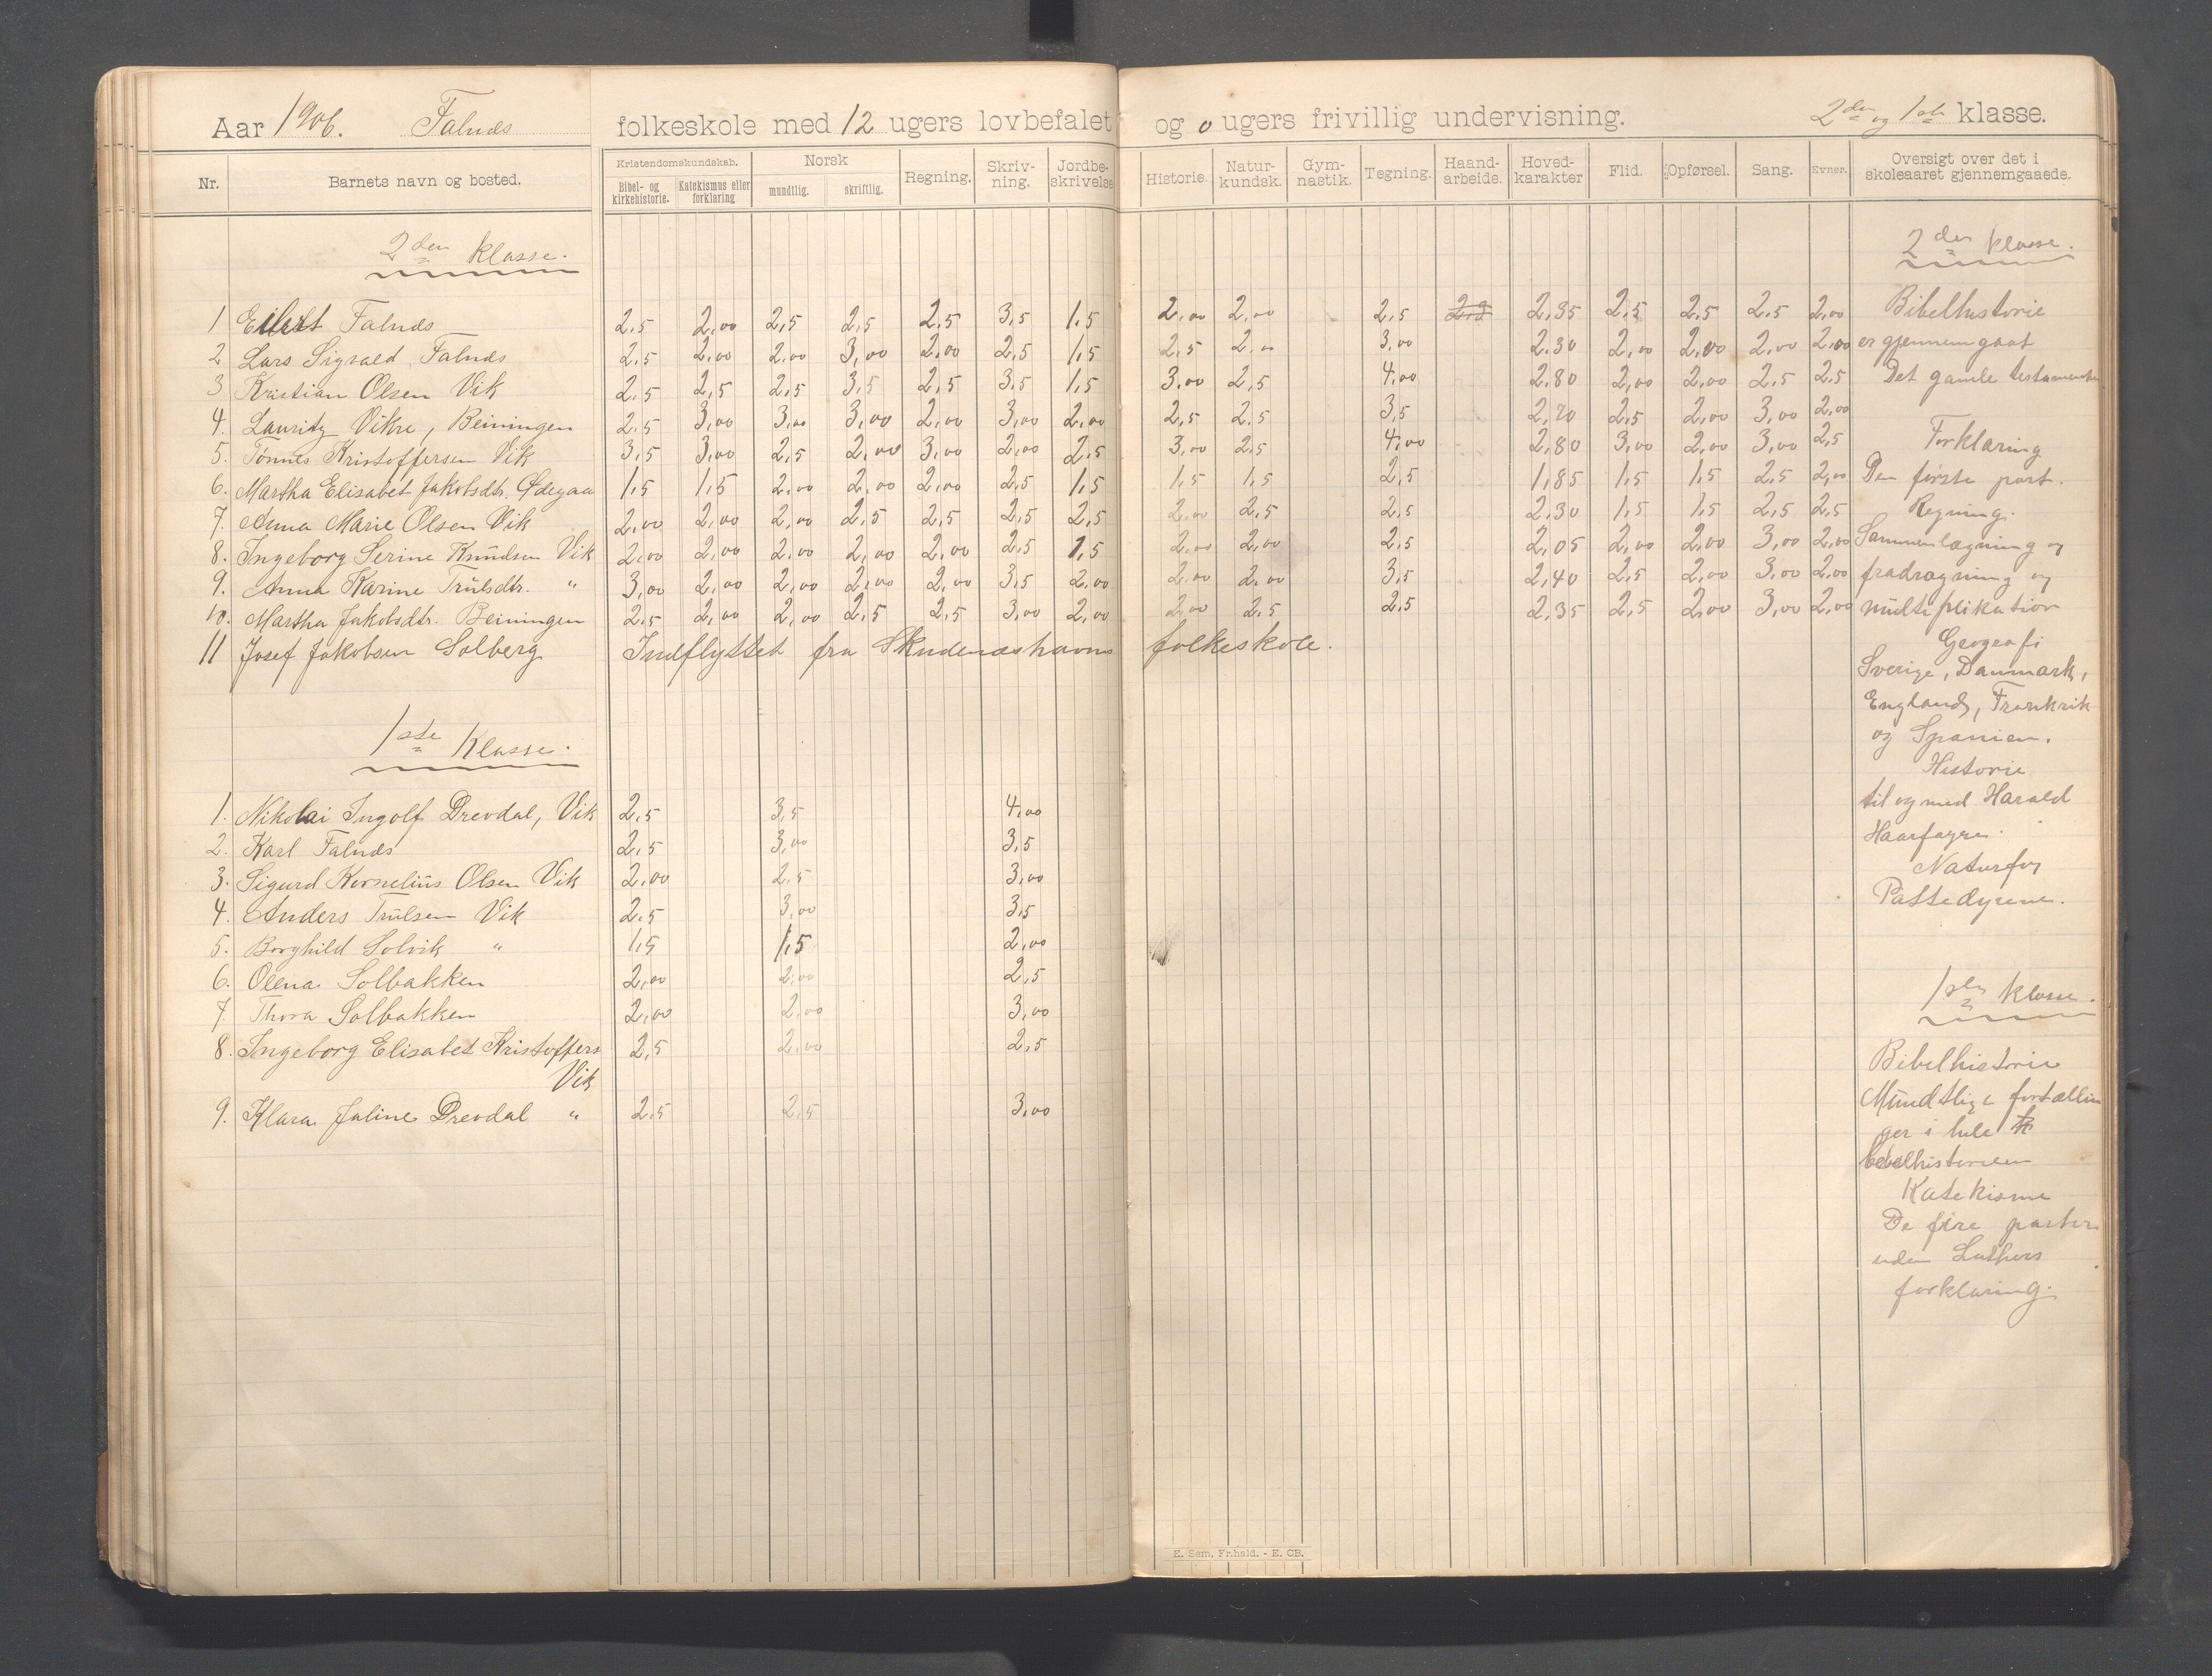 Aar 1906. Falnds folkeskole med 12 ugers lovbefalet og 0 ugers frivillig undervisning. 2den og 1ste klasse.
Nr. Barnets navn og bosted. Kristendomskundskab. Bibel- og kirkehistorie. Katekismus eller forklaring Norsk mundtlig. skriftlig. Regning. Skriv-ning. Jordbe-skrivelse Historie. Natur-kundsk. Gym-nastik. Tegning. Haand-arbeide. Hoved-karakter Flid. Opførsel. Sang. Evner. Oversigt over det i skoleaaret gjennemgaaede.
2den klasse. 2den klasse.
1 Eilert Falnds 2,5 2,00 2,5 2,5 2,5 3,5 1,5 2,00 2,00 2,5 2,35 2,5 2,5 2,5 2,00 Bibelhistorie
2 Lars Sigvald Falnds 2,5 2,00 2,00 3,00 2,00 2,5 1,5 2,5 2,00 3,00 2,30 2,00 2,00 2,00 2,00 er gjennemgaat
3 Kristian Olsen Vik 2,5 2,5 2,5 3,5 2,5 3,5 1,5 3,00 2,5 4,00 2,80 2,00 2,00 2,5 2,5 Det gamle testamente
4. Lauritz Vikre, Beiningen 2,5 3,00 3,00 3,00 2,00 3,00 2,00 2,5 2,5 3,5 2,70 2,5 2,00 3,00 2,00
5. Tønnes Kristoffersen Vik 3,5 3,00 2,5 2,00 3,00 2,00 2,5 3,00 2,5 4,00 2,80 3,00 2,00 3,00 2,5 Forklaring
6. Martha Elisabet Jakobsdtr. Ødegaa 1,5 1,5 2,00 2,00 2,00 2,5 1,5 1,5 1,5 2,5 1,85 1,5 1,5 2,5 2,00 Den første part.
7. Anna Marie Olsen Vik 2,00 2,00 2,00 2,5 2,5 2,5 2,5 2,00 2,5 2,5 2,30 1,5 1,5 2,5 2,5 Regning.
8. Ingeborg Serine Knudsen Vik 2,00 2,00 2,00 2,00 2,00 2,5 1,5 2,00 2,00 2,5 2,05 2,00 2,00 3,00 2,00 Sammenlægning og
9. Anna Karine Trulsdtr. " 3,00 2,00 2,00 2,00 2,00 3,5 2,00 2,00 2,00 3,5 2,40 2,5 2,00 3,00 2,00 fradragning og
10. Martha Jakobsdtr. Beiningen 2,5 2,00 2,00 2,5 2,5 3,00 2,00 2,00 2,5 2,5 2,35 2,5 2,00 3,00 2,00 multiplikation
11 Josef Jakobsen Solberg Indflyttet fra Skudenæshavns folkeskole. Geografi
Sverige, Danmark,
England, Frankrik
og Spanien.
1ste Klasse. Historie
1. Nikolai Ingolf Drevdal, Vik 2,5 3,5 4,00 til og med Harald
2. Karl Falnds 2,5 3,00 3,5 Haarfagre.
3. Sigurd Kornelius Olsen Vik 2,00 2,5 3,00 Naturfag
4. Anders Trulsen Vik 2,5 3,00 3,5 Pattedyrene.
5. Borghild Solvik " 1,5 1,5 2,00
6. Olena Solbakken 2,00 2,00 2,5
7 Thora Solbakken 2,00 2,00 3,00 1ste klasse.
8. Ingeborg Elisabet Kristoffers 2,5 2,00 2,5 Bibelhistorie
Vik
9. Klara Jaline Drevdal " 2,5 2,5 3,00 Mundtlige fortællin
ger i hele
bibelhistorien
Katekisme
De fire parter
uden Luthers
forklaring.
E. Sem, Fr.hald. - E. CB.